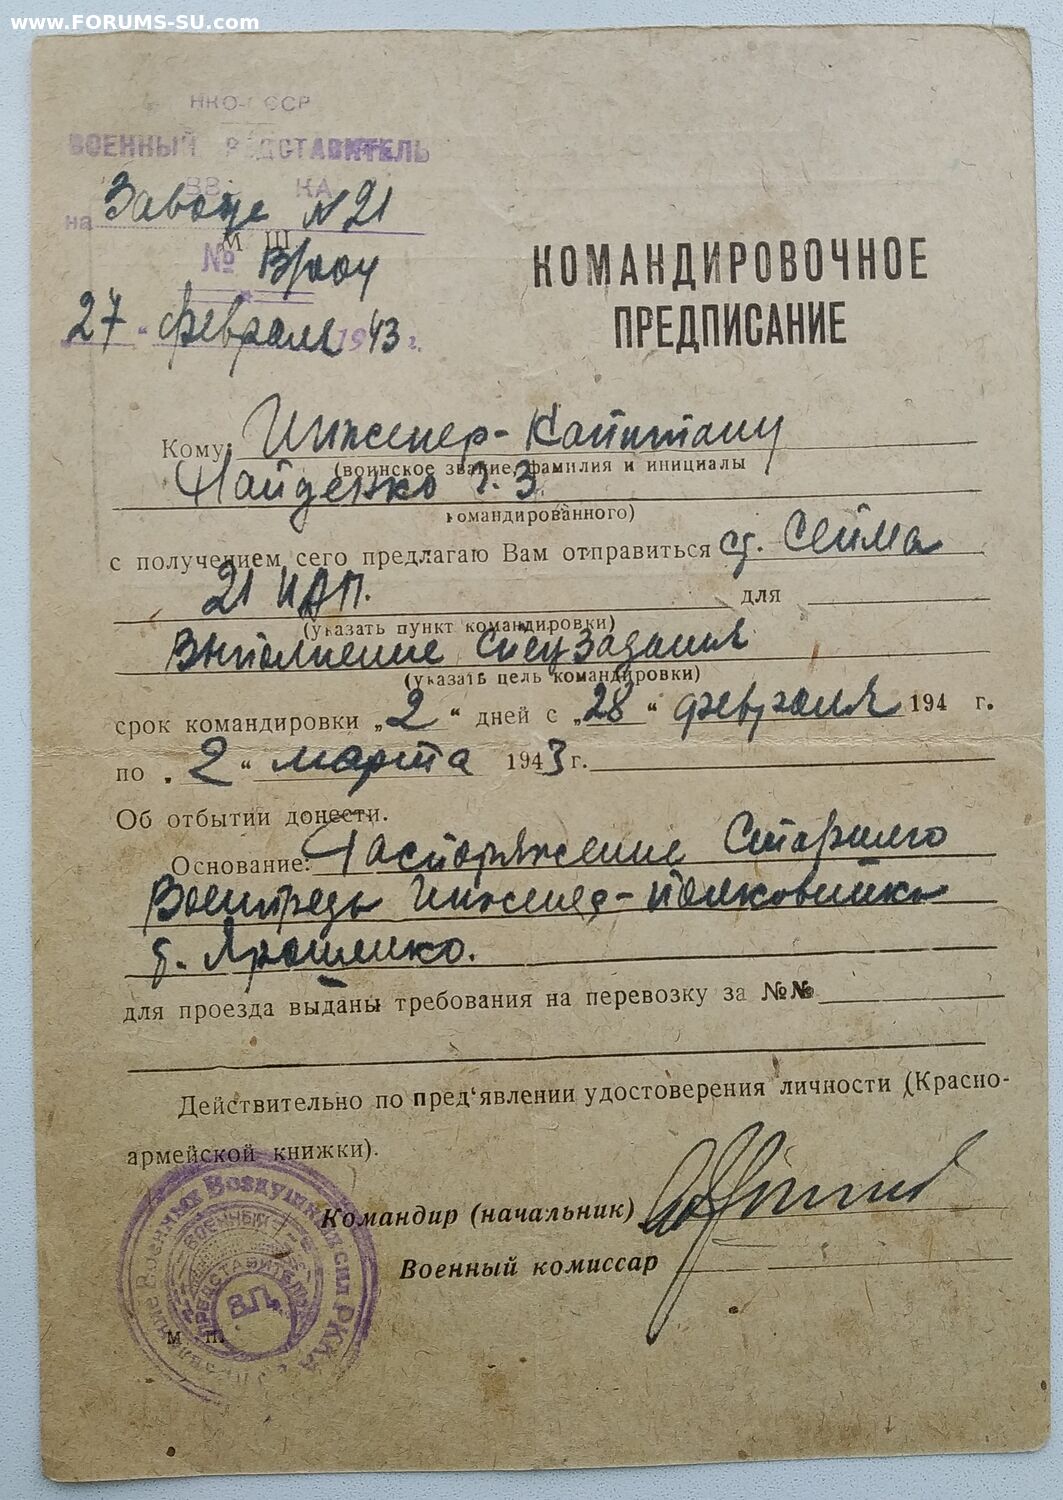 www.FORUMS-SU.com
НКО-СССР
ВОЕННЫЙ ПРЕДСТАВИТЕЛЬ
ВВС КА
на Заводе №21
М Ш
№
27 " февраля 1943 г.
КОМАНДИРОВОЧНОЕ
ПРЕДПИСАНИЕ
Кому: Инженер-Капитану
(воинское звание, фамилия и инициалы
Найденко Г. З.
командированного)
с получением сего предлагаю Вам отправиться ст. Сейма
21 ИАП. для
(указать пункт командировки)
Выполнение Спецзадания
(указать цель командировки)
срок командировки „2“ дней с „28“ февраля 194 г.
по „2“ марта 1943 г.
Об отбытии донести.
Основание: Распоряжение Старшего
Военпреда Инженер-полковника
т. Ярошенко.
для проезда выданы требования на перевозку за №№
Действительно по пред‘явлении удостоверения личности (Красно-
армейской книжки).
Командир (начальник)
Военный комиссар
Управление Военных Воздушных сил РККА
ВОЕННЫЙ
ПРЕДСТАВИТЕЛЬ
В.П.
м п.